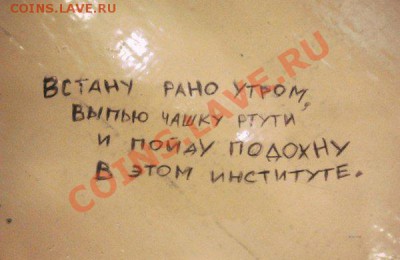 COINS.ЛАVE.RU
ВСТАНУ РАНО УТРОМ,
ВЫПЬЮ ЧАШКУ РТУТИ
И ПОЙДУ ПОДОХНУ
В ЭТОМ ИНСТИТУТЕ.
COINS.LAVE.RU
COINS.LAVE.RU